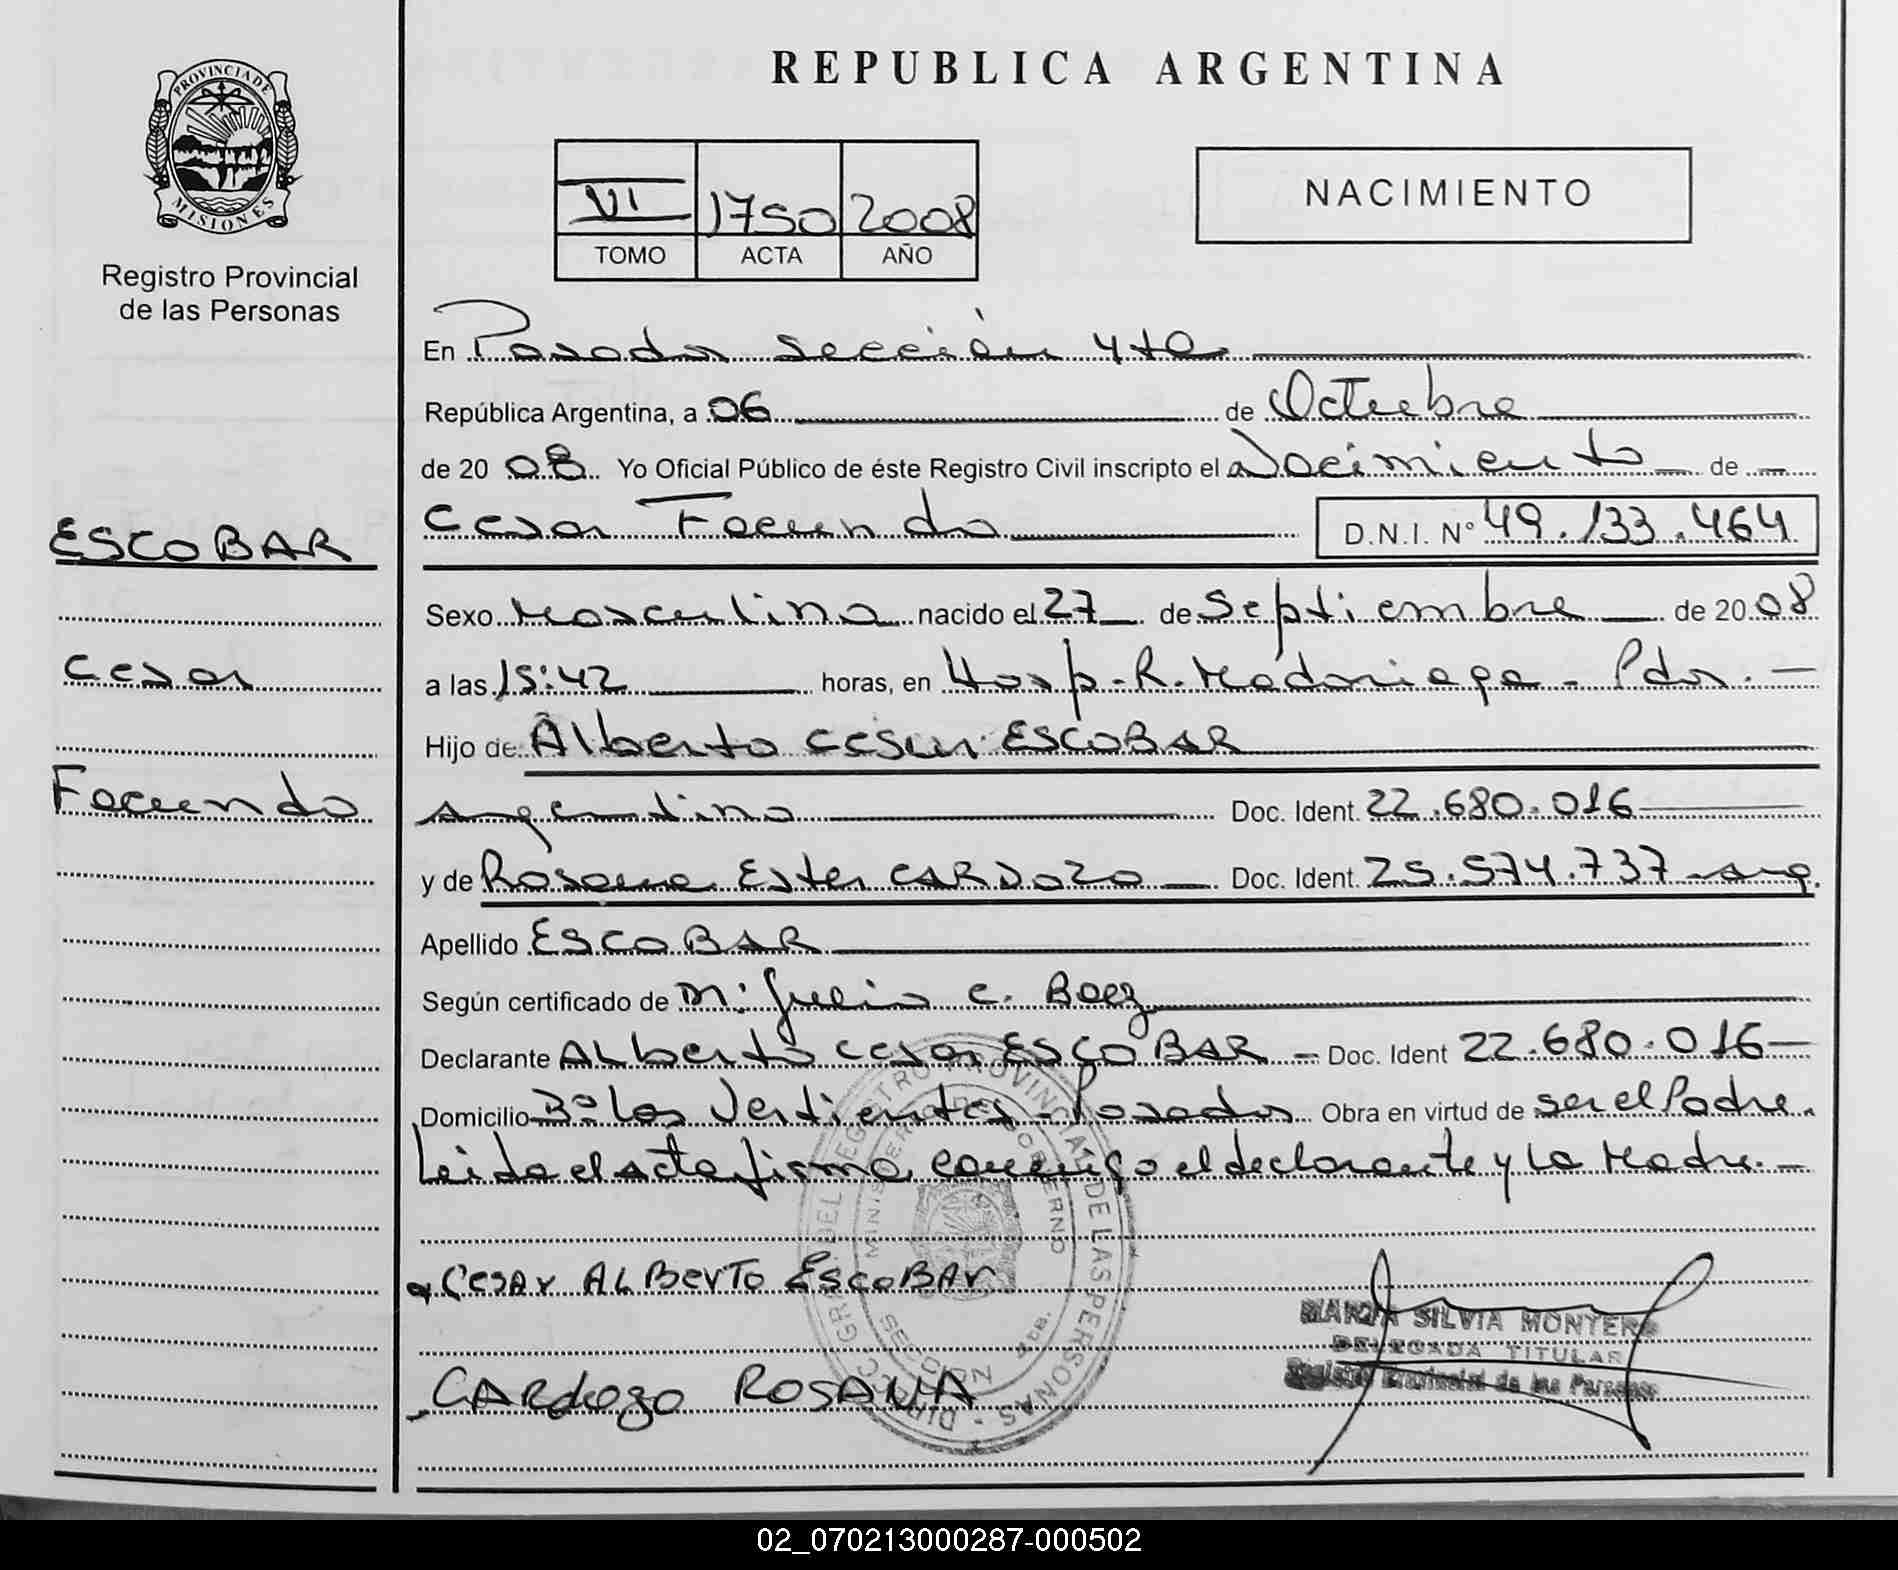 REPUBLICA ARGENTINA
PROVINCIA DE
MISIONES
Registro Provincial
de las Personas
VI 1750 2008
TOMO ACTA AÑO
NACIMIENTO
En Posadas sección 4ta
República Argentina, a 06 de Octubre
de 20 08 Yo Oficial Público de éste Registro Civil inscripto el Nacimiento de
Cesar Facundo D.N.I. Nº 49.133.464
ESCOBAR
Cesar
Facundo
Sexo Masculino nacido el 27 de Septiembre de 20 08
a las 15:42 horas, en Hosp. R. Madariaga - Pdas. -
Hijo de Alberto Cesar ESCOBAR
Argentino Doc. Ident. 22.680.016
y de Rosana Ester CARDOZO Doc. Ident. 25.574.737 Arg.
Apellido ESCOBAR
Según certificado de Julio C. Baez
Declarante Alberto Cesar ESCOBAR - Doc. Ident 22.680.016
Domicilio Bº Las Vertientes - Posadas Obra en virtud de ser el Padre.
Leida el acta firma conmigo el declarante y la Madre. -
Cesar ALBerTo EscoBAr
CARdozo ROSANA
MARIA SILVIA MONTERO
DELEGADA TITULAR
Registro Provincial de las Personas
DIREC. GRAL. DEL REGISTRO PROVINCIAL DE LAS PERSONAS -
MINISTERIO DE GOBIERNO
SECCION 4ta.
02_070213000287-000502